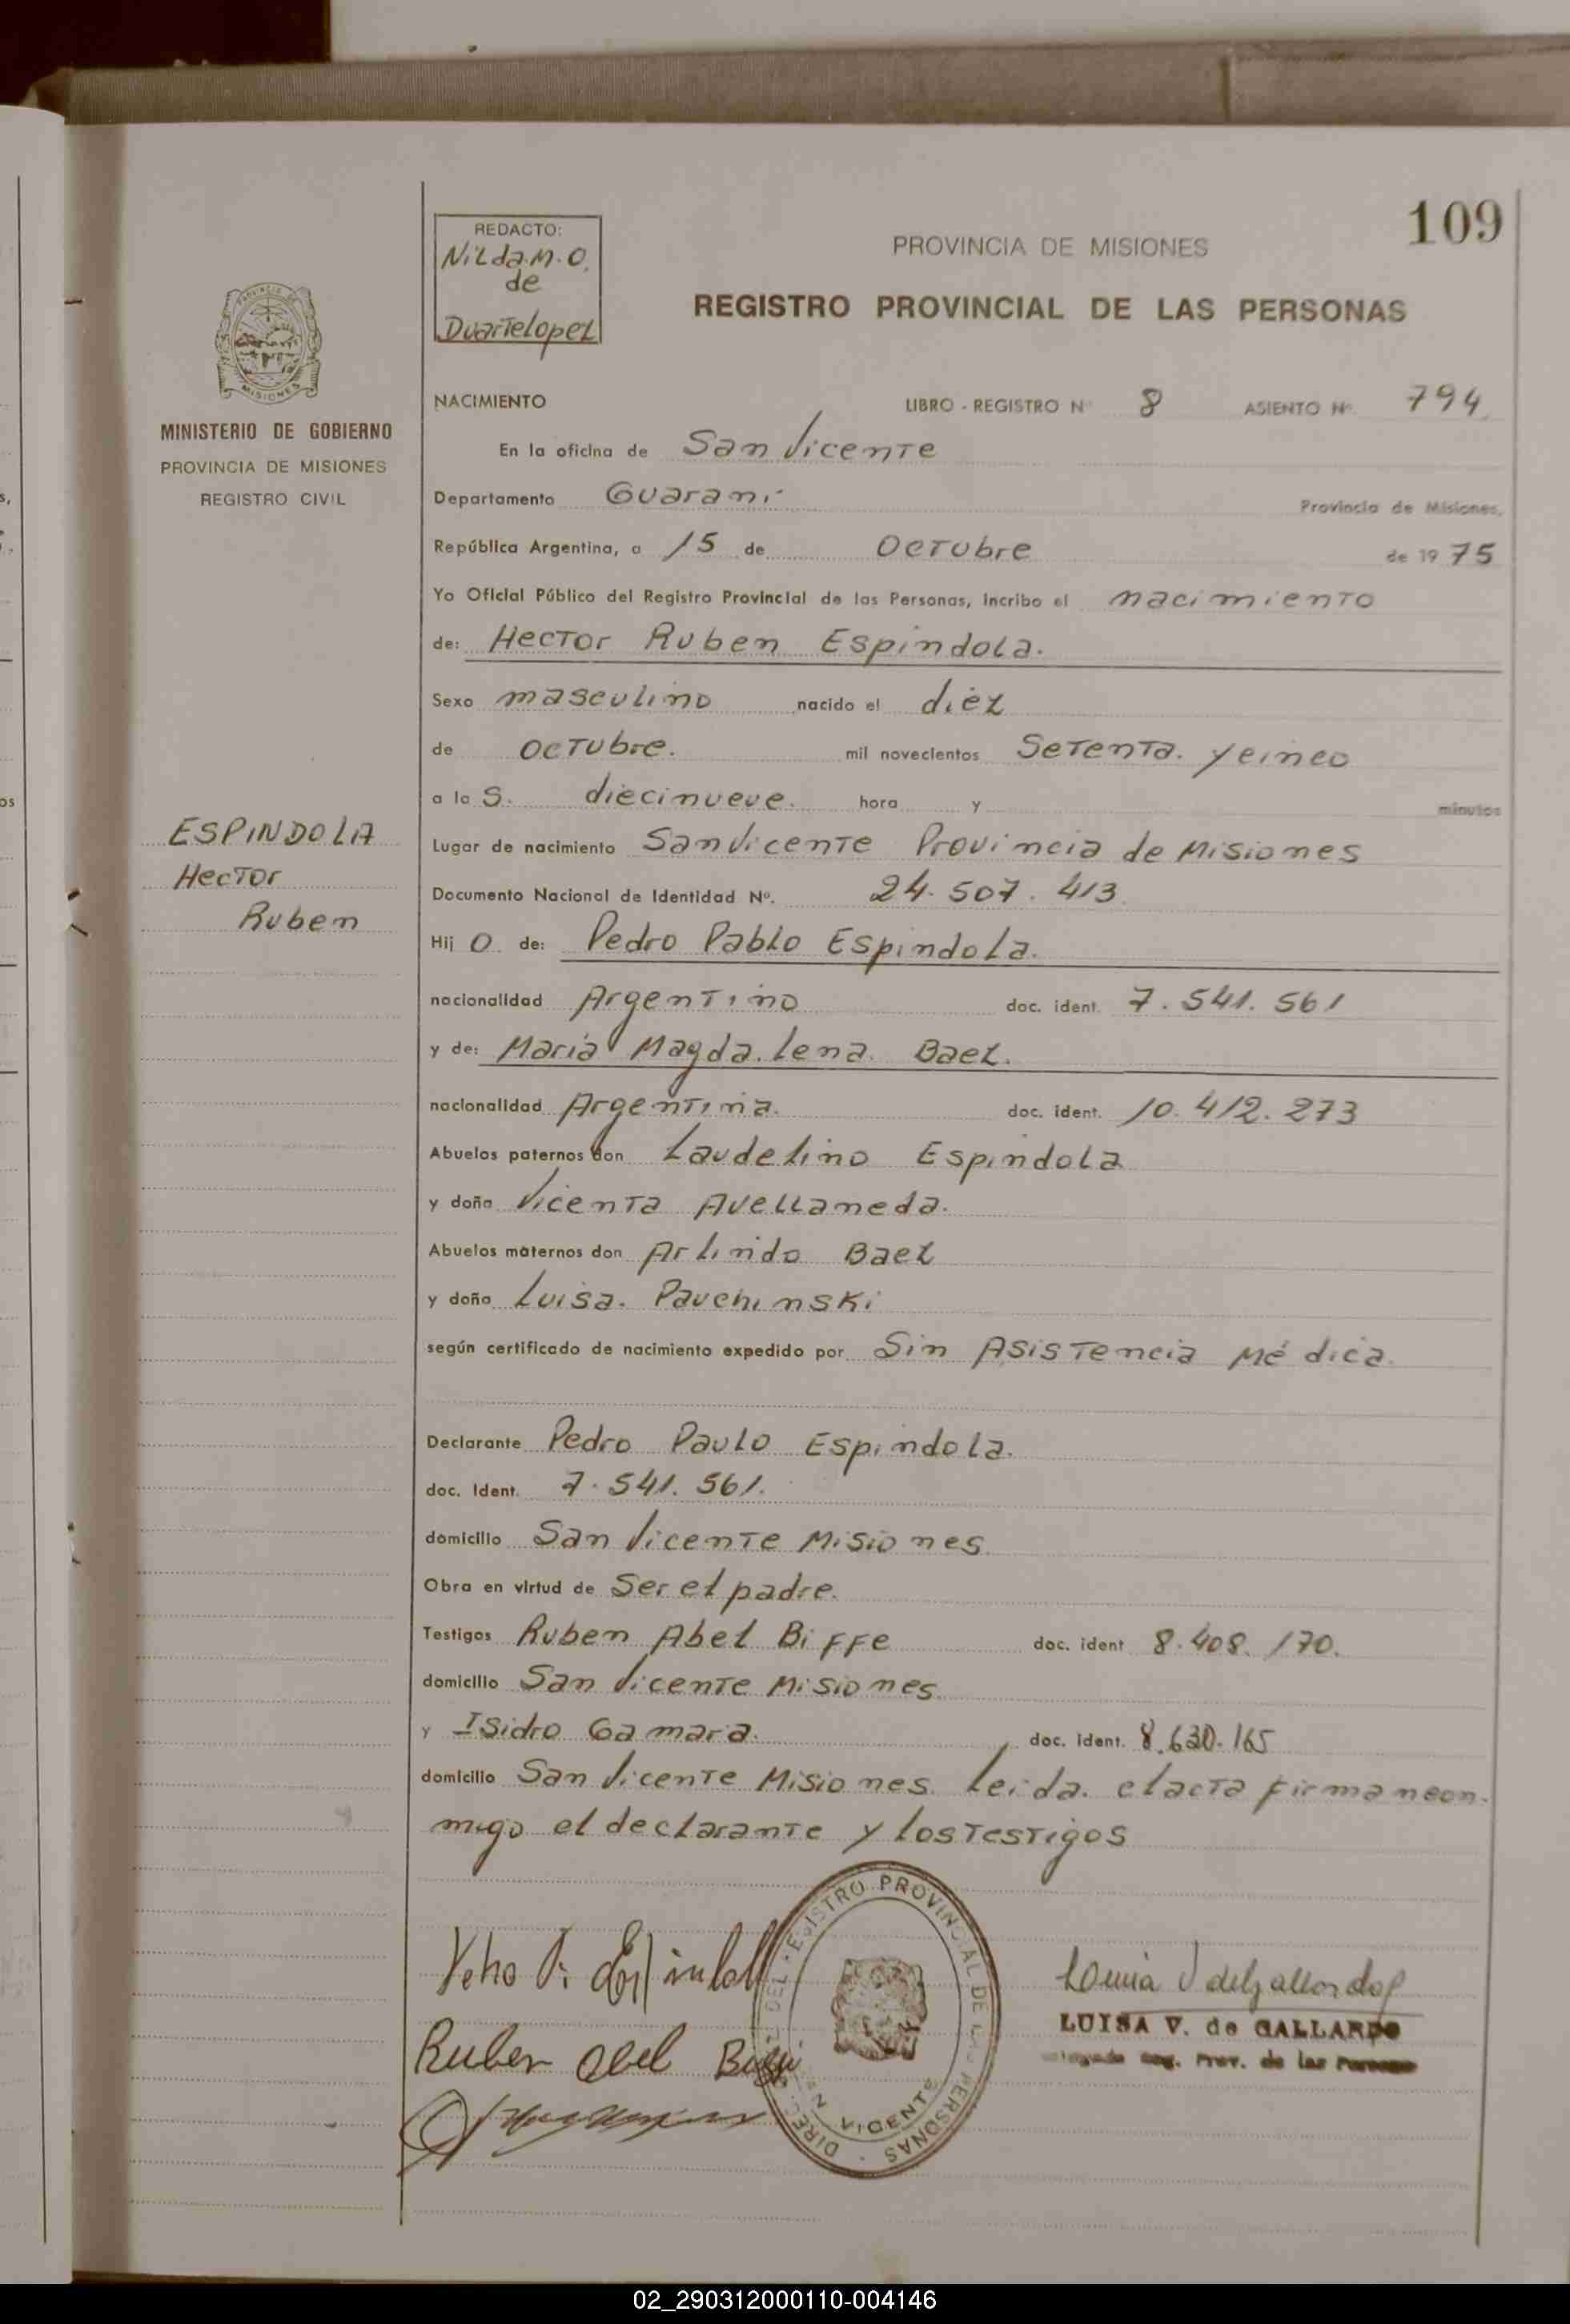 109
REDACTO:
Nilda M. O.
de
Duartelopez
PROVINCIA DE MISIONES
REGISTRO PROVINCIAL DE LAS PERSONAS
PROVINCIA DE
MISIONES
MINISTERIO DE GOBIERNO
PROVINCIA DE MISIONES
REGISTRO CIVIL
NACIMIENTO LIBRO - REGISTRO Nº 8 ASIENTO Nº 794
En la oficina de San Vicente
Departamento Guaraní Provincia de Misiones,
República Argentina, a 15 de Octubre de 1975
Yo Oficial Público del Registro Provincial de las Personas, incribo el nacimiento
de: Hector Ruben Espindola.
Sexo masculino nacido el diez
de octubre. mil novecientos Setenta. y cinco
a la S. diecinueve. hora y minutos
Lugar de nacimiento San Vicente Provincia de Misiones
Documento Nacional de Identidad Nº. 24.507.413
Hij o de: Pedro Pablo Espindola.
nacionalidad Argentino doc. ident. 7.541.561
y de: Maria Magdalena Baez.
nacionalidad Argentina. doc. ident. 10.412.273
Abuelos paternos don Laudelino Espindola
y doña Vicenta Avellaneda.
Abuelos maternos don Arlindo Baez
y doña Luisa. Pauchinski
según certificado de nacimiento expedido por Sin Asistencia Médica.
Declarante Pedro Paulo Espindola.
doc. Ident. 7.541.561.
domicilio San Vicente Misiones
Obra en virtud de Ser el padre.
Testigos Ruben Abel Biffe doc. ident 8.408.170.
domicilio San Vicente Misiones
y Isidro Gamara. doc. ident. 8.630.165
domicilio San Vicente Misiones. Leida. el acta firman con-
migo el declarante y los testigos
ESPINDOLA
Hector
Ruben
Ruben Abel
REGISTRO PROVINCIAL DE LAS PERSONAS
SAN VICENTE
LUISA V. de GALLARDO
Reg. Prov. de las Personas
02_290312000110-004146